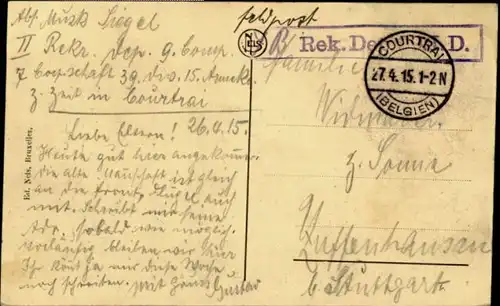 Abs. Musk Siegel
II Rekr. Dep. 9. Comp.
7 Corporalschaft 39. Div. 15. Armeek.
z. Zeit in Courtrai
Feldpost
NELS
Rek. De D.
COURTRAI
27.4.15. 1-2N
(BELGIEN)
Familie
z. Sonne
Zuffenhausen
b. Stuttgart
Ed. Nels, Bruxelles.
26.4.15.
Liebe Eltern!
Heute gut hier angekommen
die alte Manschaft ist gleich
an die Front, auch
mit. Schreibt mir meine
Adr. sobald wie möglich.
Vorläufig bleiben wir hier
Ihr könt ja nur diese Woche
noch schreiben. Mit Gruß Gustav